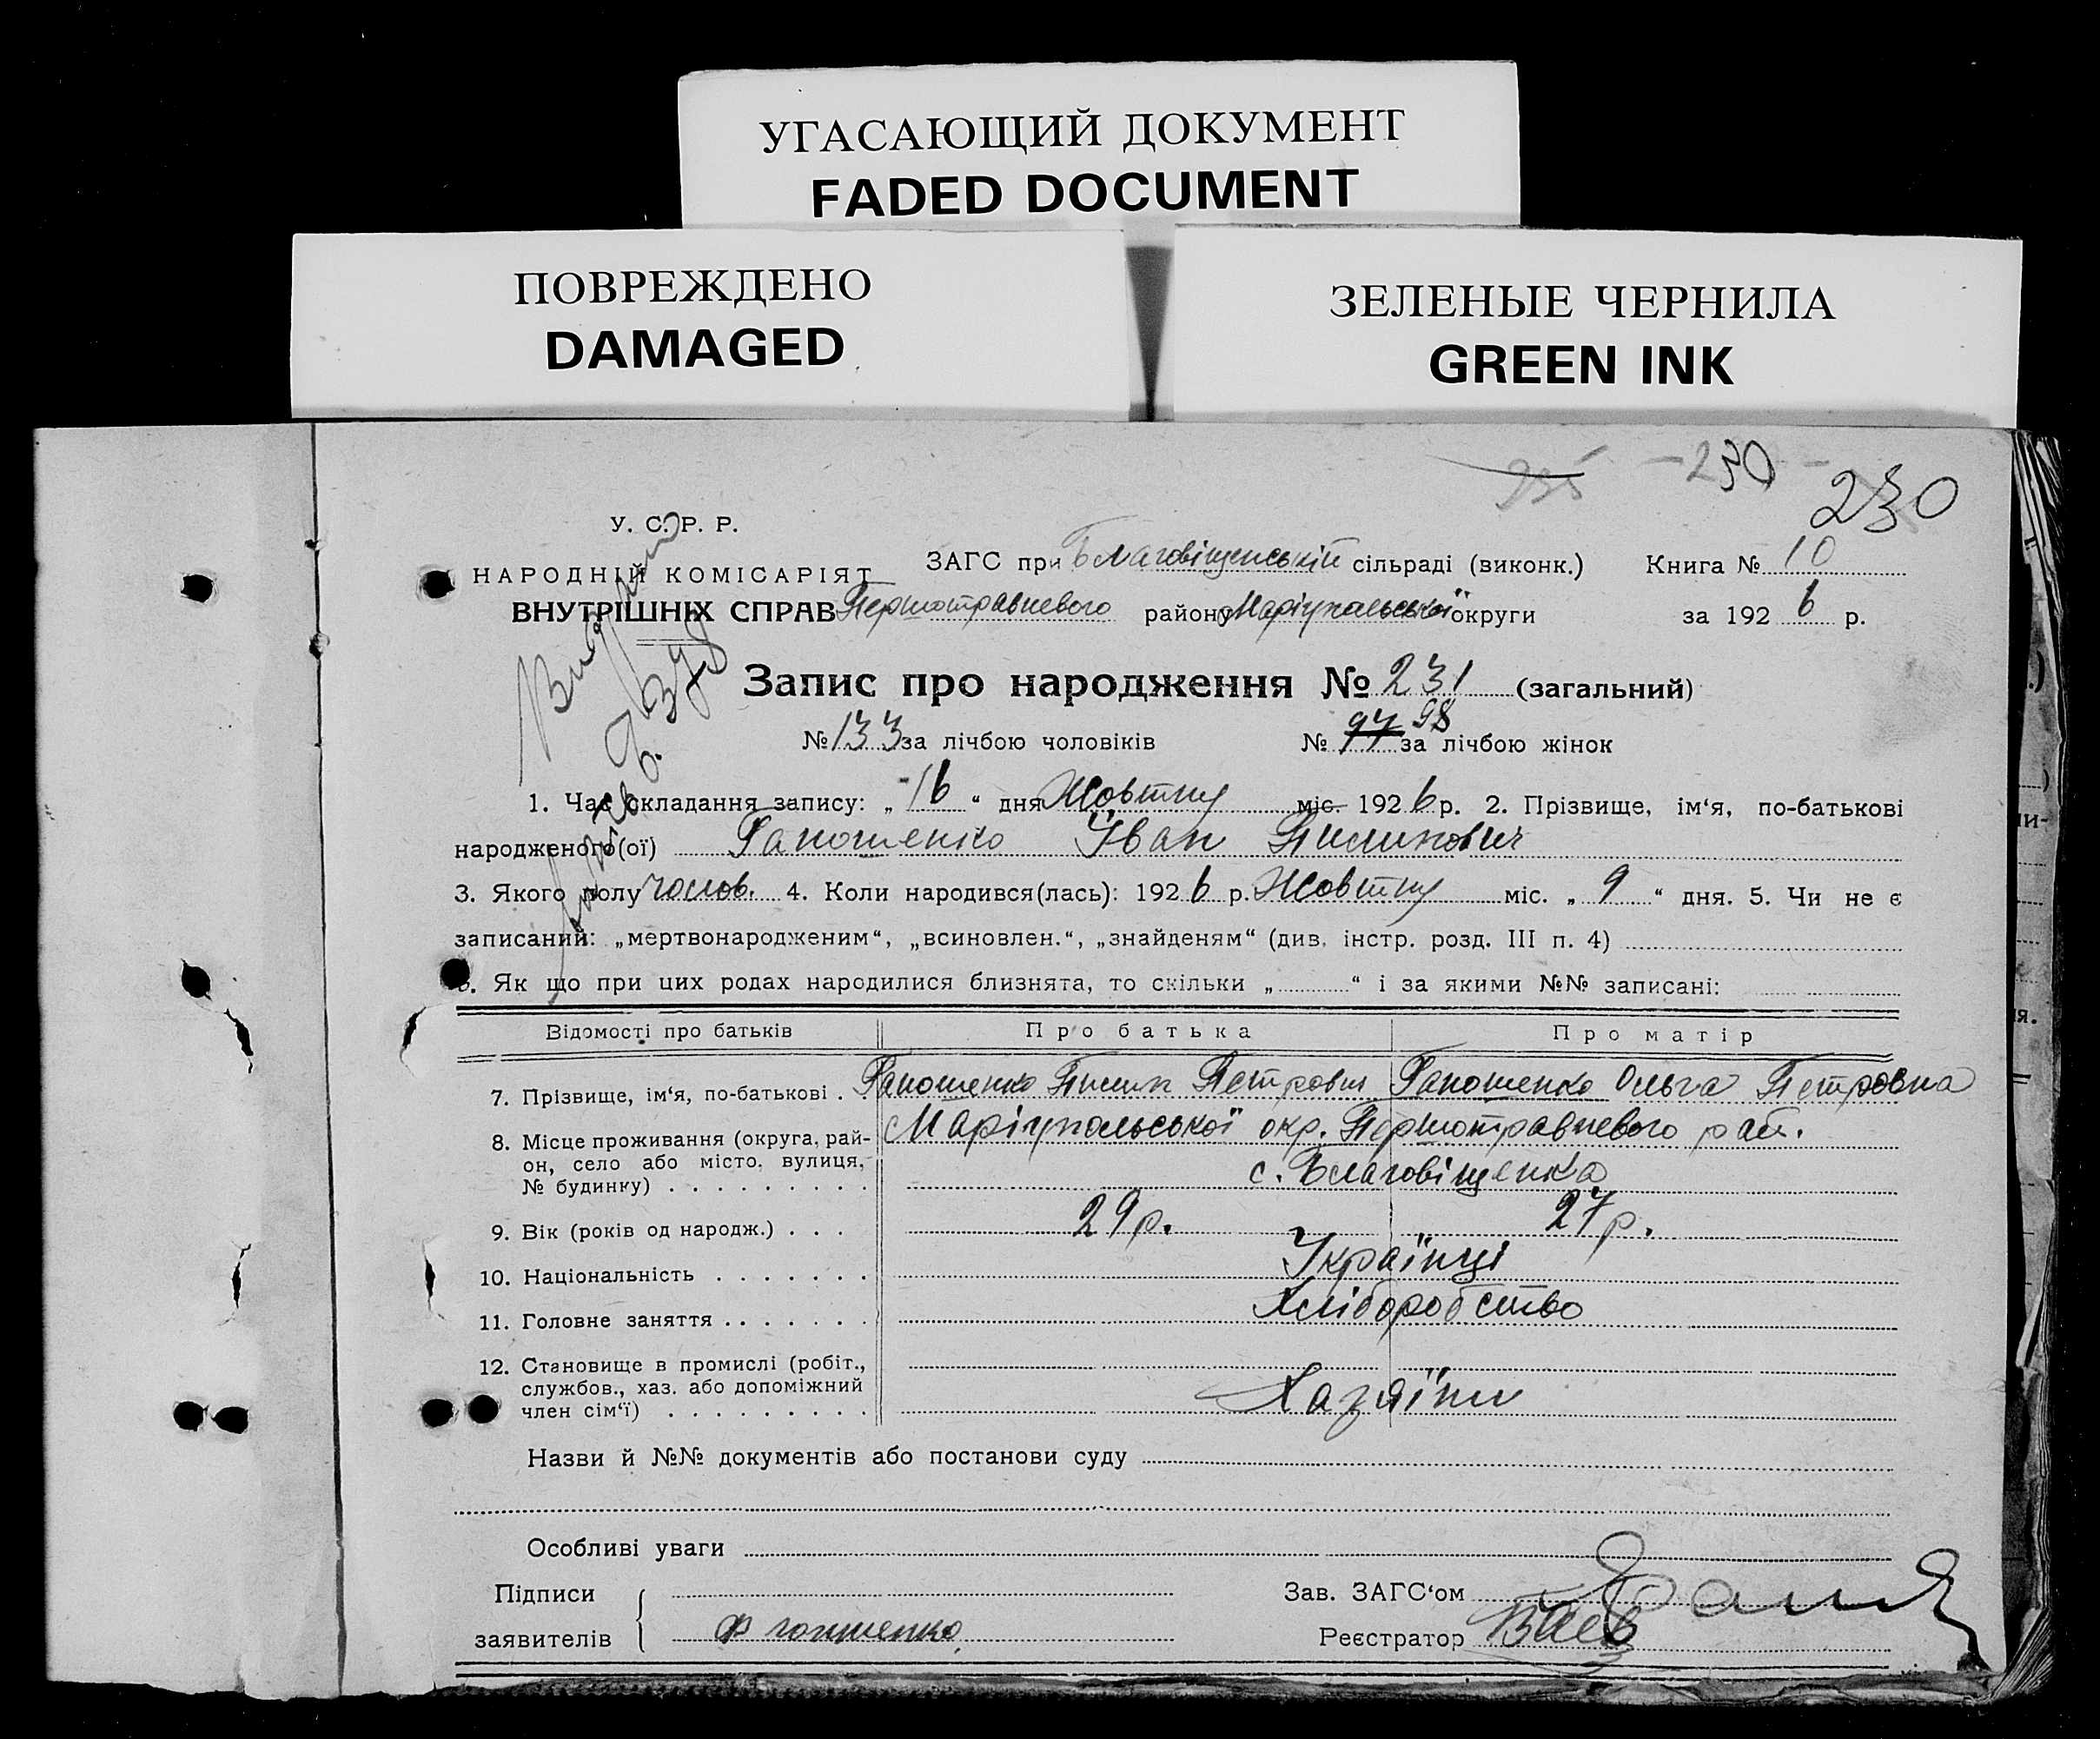 УГАСАЮЩИЙ ДОКУМЕНТ
FADED DOCUMENT
ПОВРЕЖДЕНО
DAMAGED
ЗЕЛЕНЫЕ ЧЕРНИЛА
GREEN INK
235 - 230 -
230
У. С. Р. Р.
НАРОДНІЙ КОМІСАРІЯТ
ВНУТРІШНІХ СПРАВ
ЗАГС при Благовіщенській сільраді (виконк.) Книга № 10
Першотравневого району Маріупальської округи за 192 6 р.
Запис про народження № 231 (загальний)
№ 133 за лічбою чоловіків № 97 98 за лічбою жінок
1. Час складання запису: „ 16 “ дня Жовтну міс. 192 6 р. 2. Прізвище, ім‘я, по-батькові
народженого(ої) Гапошенко Іван Пилипович
3. Якого полу чолов. 4. Коли народився(лась): 192 6 р. Жовтну міс. „ 9 “ дня. 5. Чи не є
записаний: „мертвонародженим“, „всиновлен.“, „знайденям“ (див. інстр. розд. III п. 4)
6. Як що при цих родах народилися близнята, то скільки „ “ і за якими №№ записані:
Відомості про батьків Про батька Про матір
7. Прізвище, ім‘я, по-батькові . Гапошенко Пилип Петрович Гапошенко Ольга Петровна
8. Місце проживання (округа, рай- Маріупальської окр. Першотравневого рай.
он, село або місто, вулиця, с. Благовіщенка
№ будинку) . . . . . . . . .
9. Вік (років од народж.) . . . 29 р. 27 р.
10. Національність . . . . . . . Українці
11. Головне заняття . . . . . . . Хліборобство
12. Становище в промислі (робіт.,
службов., хаз. або допоміжний Хазяїни
член сім‘ї) . . . . . . . . .
Назви й №№ документів або постанови суду
Особливі уваги
Підписи
заявителів
Зав. ЗАГС‘ом
Реєстратор